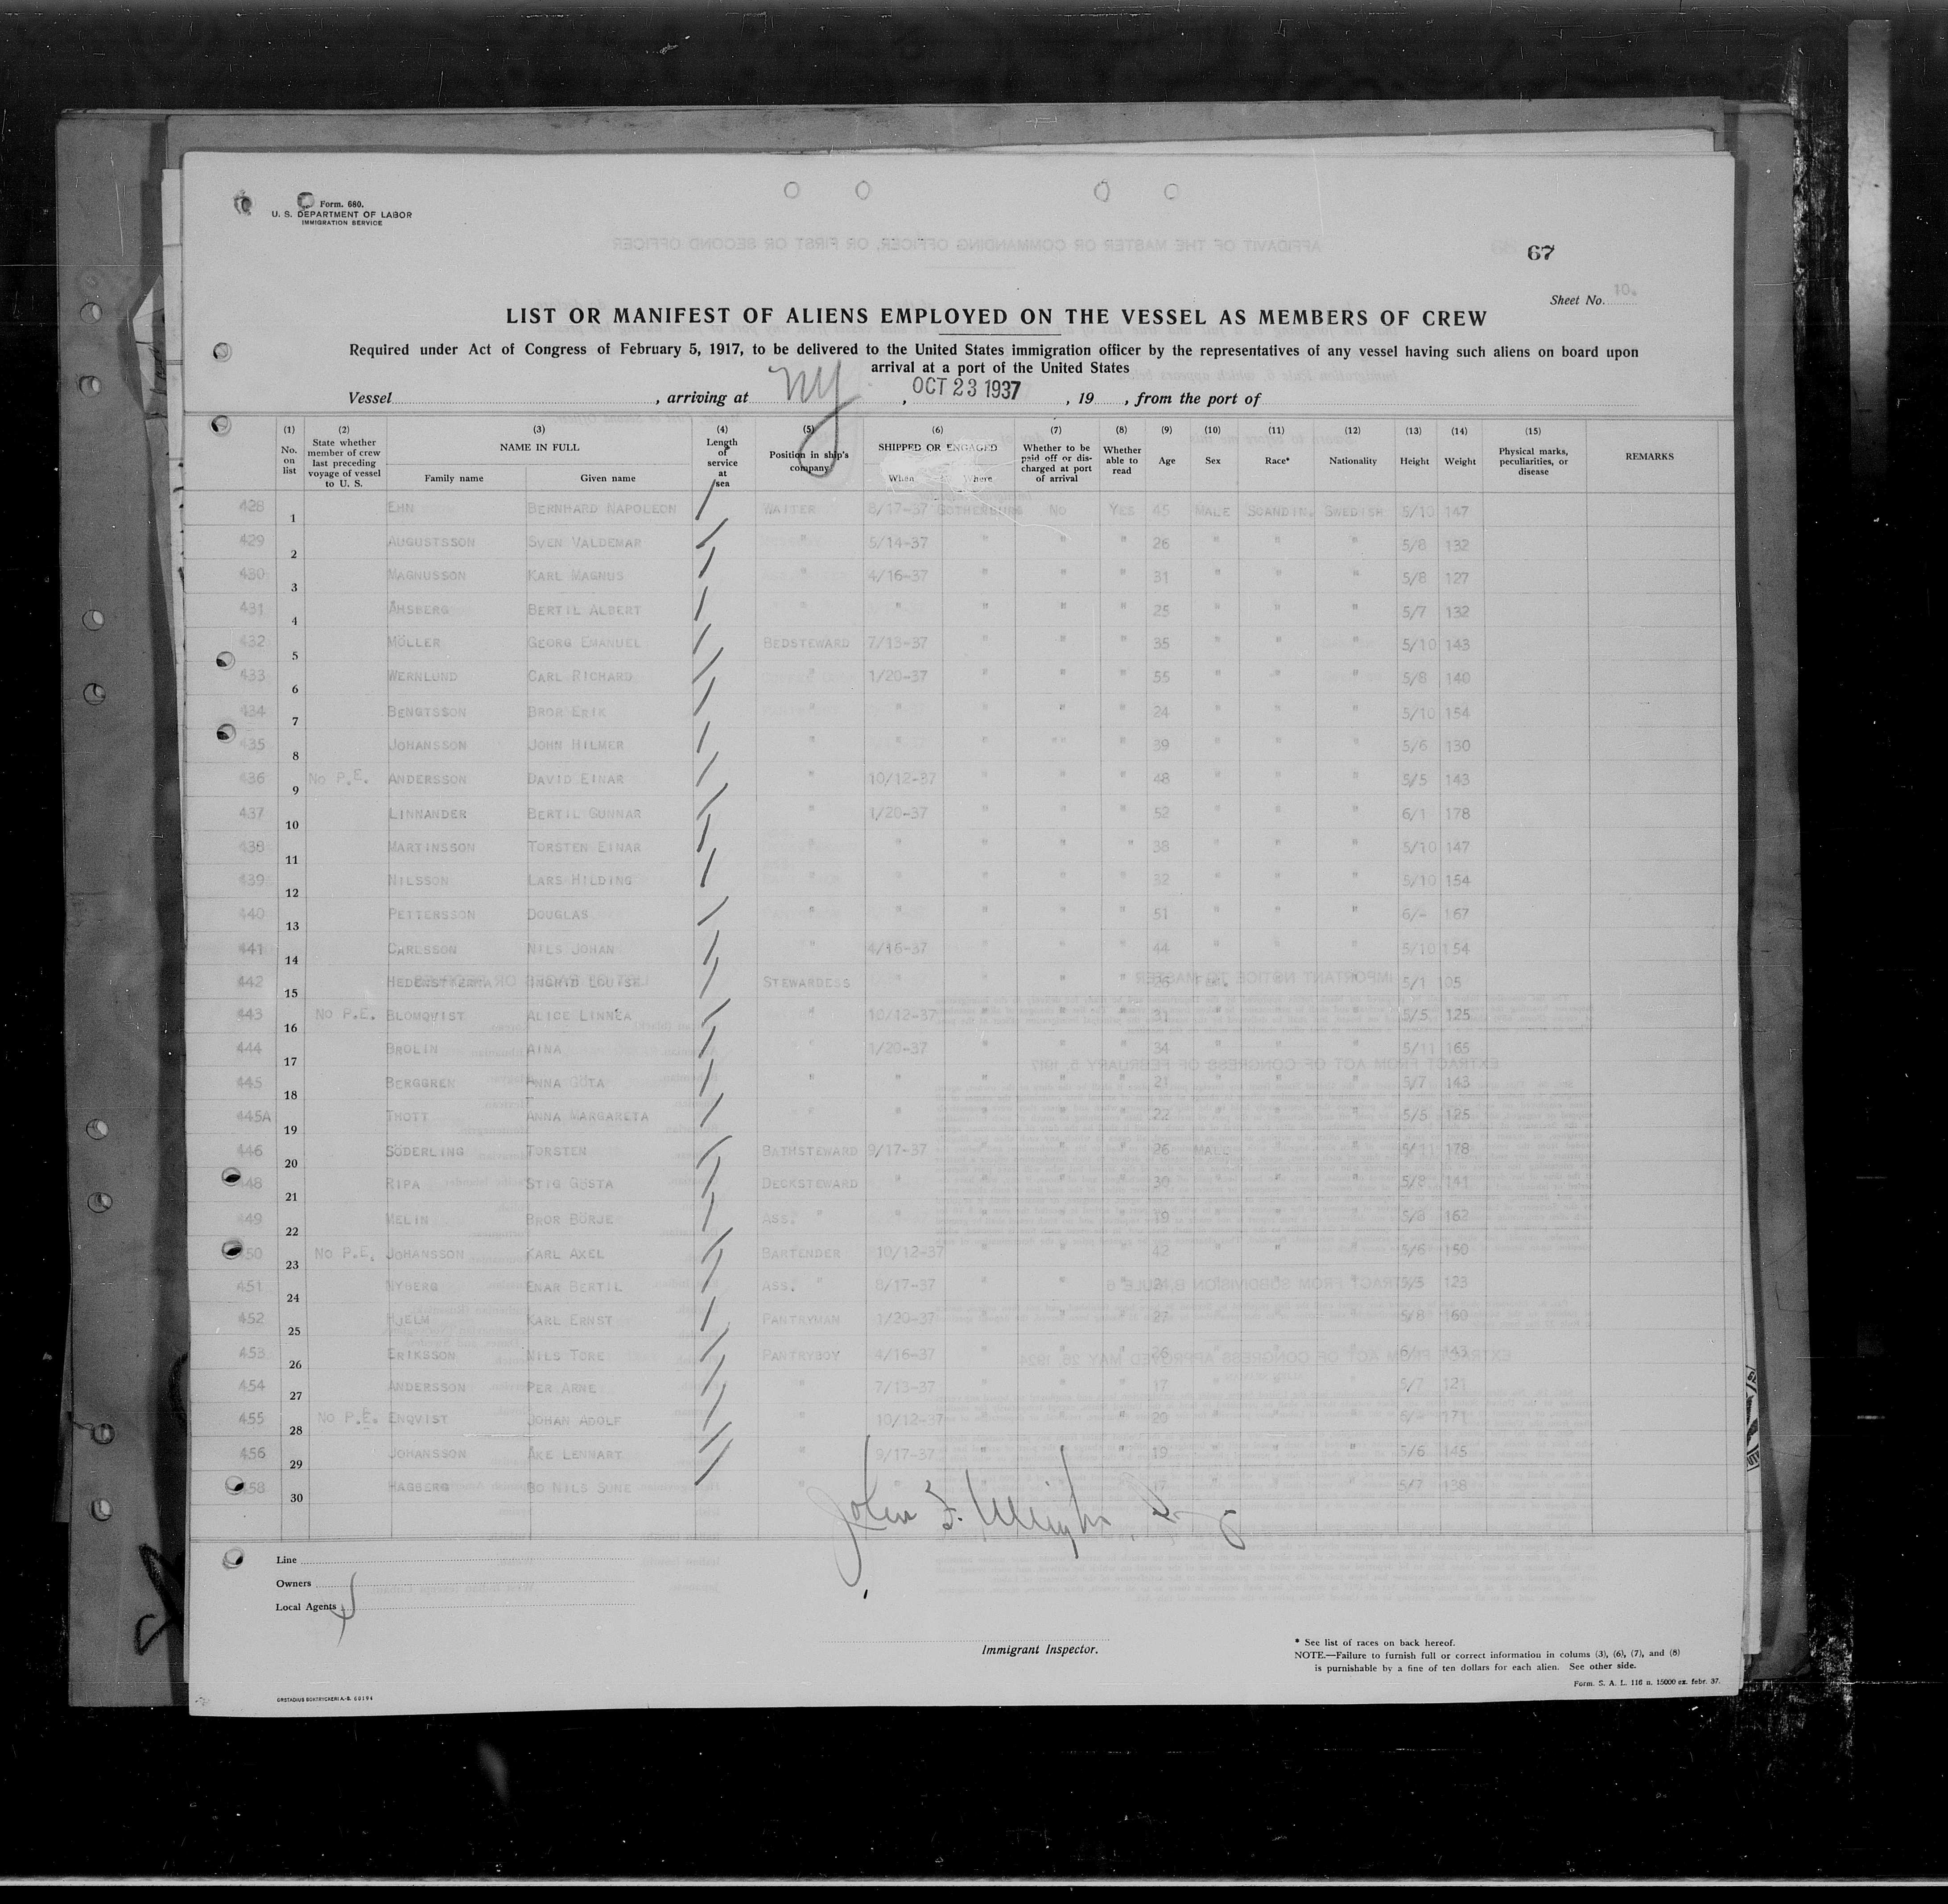 Form. 680.
U. S. DEPARTMENT OF LABOR
IMMIGRATION SERVICE
67
Sheet No. 10.
LIST OR MANIFEST OF ALIENS EMPLOYED ON THE VESSEL AS MEMBERS OF CREW
Required under Act of Congress of February 5, 1917, to be delivered to the United States immigration officer by the representatives of any vessel having such aliens on board upon
arrival at a port of the United States
Vessel , arriving at NY , OCT 23 1937 , 19 , from the port of
(1) No. on list (2) State whether member of crew last preceding voyage of vessel to U. S. (3) NAME IN FULL Family name Given name (4) Length of service at sea (5) Position in ship's company (6) SHIPPED OR ENGAGED When Where (7) Whether to be paid off or discharged at port of arrival (8) Whether able to read (9) Age (10) Sex (11) Race* (12) Nationality (13) Height (14) Weight (15) Physical marks, peculiarities, or disease REMARKS
428 1 EHN BERNHARD NAPOLEON WAITER 8/17-37 GOTHENBURG NO YES 45 MALE SCANDIN. SWEDISH 5/10 147
429 2 AUGUSTSSON SVEN VALDEMAR " 5/14-37 " " " 26 " " " 5/8 132
430 3 MAGNUSSON KARL MAGNUS " 4/16-37 " " " 31 " " " 5/8 127
431 4 ÅHSBERG BERTIL ALBERT " " " " " 25 " " " 5/7 132
432 5 MÖLLER GEORG EMANUEL BEDSTEWARD 7/13-37 " " " 35 " " " 5/10 143
433 6 WERNLUND CARL RICHARD " 1/20-37 " " " 55 " " " 5/8 140
434 7 BENGTSSON BROR ERIK " " " " " 24 " " " 5/10 154
435 8 JOHANSSON JOHN HILMER " " " " " 39 " " " 5/6 130
436 9 NO P.E. ANDERSSON DAVID EINAR " 10/12-37 " " " 48 " " " 5/5 143
437 10 LINNANDER BERTIL GUNNAR " 1/20-37 " " " 52 " " " 6/1 178
438 11 MARTINSSON TORSTEN EINAR " " " " " 38 " " " 5/10 147
439 12 NILSSON LARS HILDING " " " " " 32 " " " 5/10 154
440 13 PETTERSSON DOUGLAS " " " " " 51 " " " 6/- 167
441 14 CARLSSON NILS JOHAN " 4/16-37 " " " 44 " " " 5/10 154
442 15 HEDENSTIERNA INGRID LOUISE STEWARDESS " " " " FEM. " " 5/1 105
443 16 NO P.E. BLOMQVIST ALICE LINNEA " 10/12-37 " " " 31 " " " 5/5 125
444 17 BROLIN AINA " 1/20-37 " " " 34 " " " 5/11 165
445 18 BERGGREN ANNA GÖTA " " " " " 21 " " " 5/7 143
445A 19 THOTT ANNA MARGARETA " " " " " 22 " " " 5/5 125
446 20 SÖDERLING TORSTEN BATHSTEWARD 9/17-37 " " " 26 MALE " " 5/11 178
448 21 RIPA STIG GÖSTA DECKSTEWARD " " " " 30 " " " 5/8 141
449 22 MELIN BROR BÖRJE ASS. " " " " " 19 " " " 5/8 162
450 23 NO P.E. JOHANSSON KARL AXEL BARTENDER 10/12-37 " " " 42 " " " 5/6 150
451 24 NYBERG ENAR BERTIL ASS. " 8/17-37 " " " 24 " " " 5/5 123
452 25 HJELM KARL ERNST PANTRYMAN 1/20-37 " " " 27 " " " 5/8 160
453 26 ERIKSSON NILS TORE PANTRYBOY 4/16-37 " " " 26 " " " 6/1 143
454 27 ANDERSSON PER ARNE " 7/13-37 " " " 17 " " " 5/7 121
455 28 NO P.E. ENQVIST JOHAN ADOLF " 10/12-37 " " " 20 " " " 171
456 29 JOHANSSON ÅKE LENNART " 9/17-37 " " " 19 " " " 5/6 145
458 30 HAGBERG BO NILS SUNE " " " " " 17 " " " 5/7 138
John F.
Line
Owners
Local Agents
Immigrant Inspector.
* See list of races on back hereof.
NOTE.—Failure to furnish full or correct information in colums (3), (6), (7), and (8)
is punishable by a fine of ten dollars for each alien. See other side.
Form. S. A. L. 116 n. 15000 ex. febr. 37.
ORSTADIUS BOKTRYCKERI A.-B. 60194